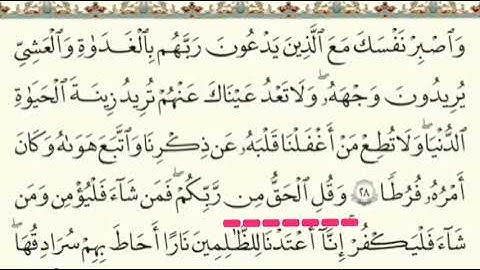 وَٱصْبِرْ نَفْسَكَ مَعَ ٱلَّذِينَ يَدْعُونَ رَبَّهُم بِٱلْغَدَوٰةِ وَٱلْعَشِىِّ
يُرِيدُونَ وَجْهَهُۥ ۖ وَلَا تَعْدُ عَيْنَاكَ عَنْهُمْ تُرِيدُ زِينَةَ ٱلْحَيَوٰةِ
ٱلدُّنْيَا ۖ وَلَا تُطِعْ مَنْ أَغْفَلْنَا قَلْبَهُۥ عَن ذِكْرِنَا وَٱتَّبَعَ هَوَىٰهُ وَكَانَ
أَمْرُهُۥ فُرُطًا ٢٨ وَقُلِ ٱلْحَقُّ مِن رَّبِّكُمْ ۖ فَمَن شَآءَ فَلْيُؤْمِن وَمَن
شَآءَ فَلْيَكْفُرْ ۚ إِنَّآ أَعْتَدْنَا لِلظَّٰلِمِينَ نَارًا أَحَاطَ بِهِمْ سُرَادِقُهَا ۚ